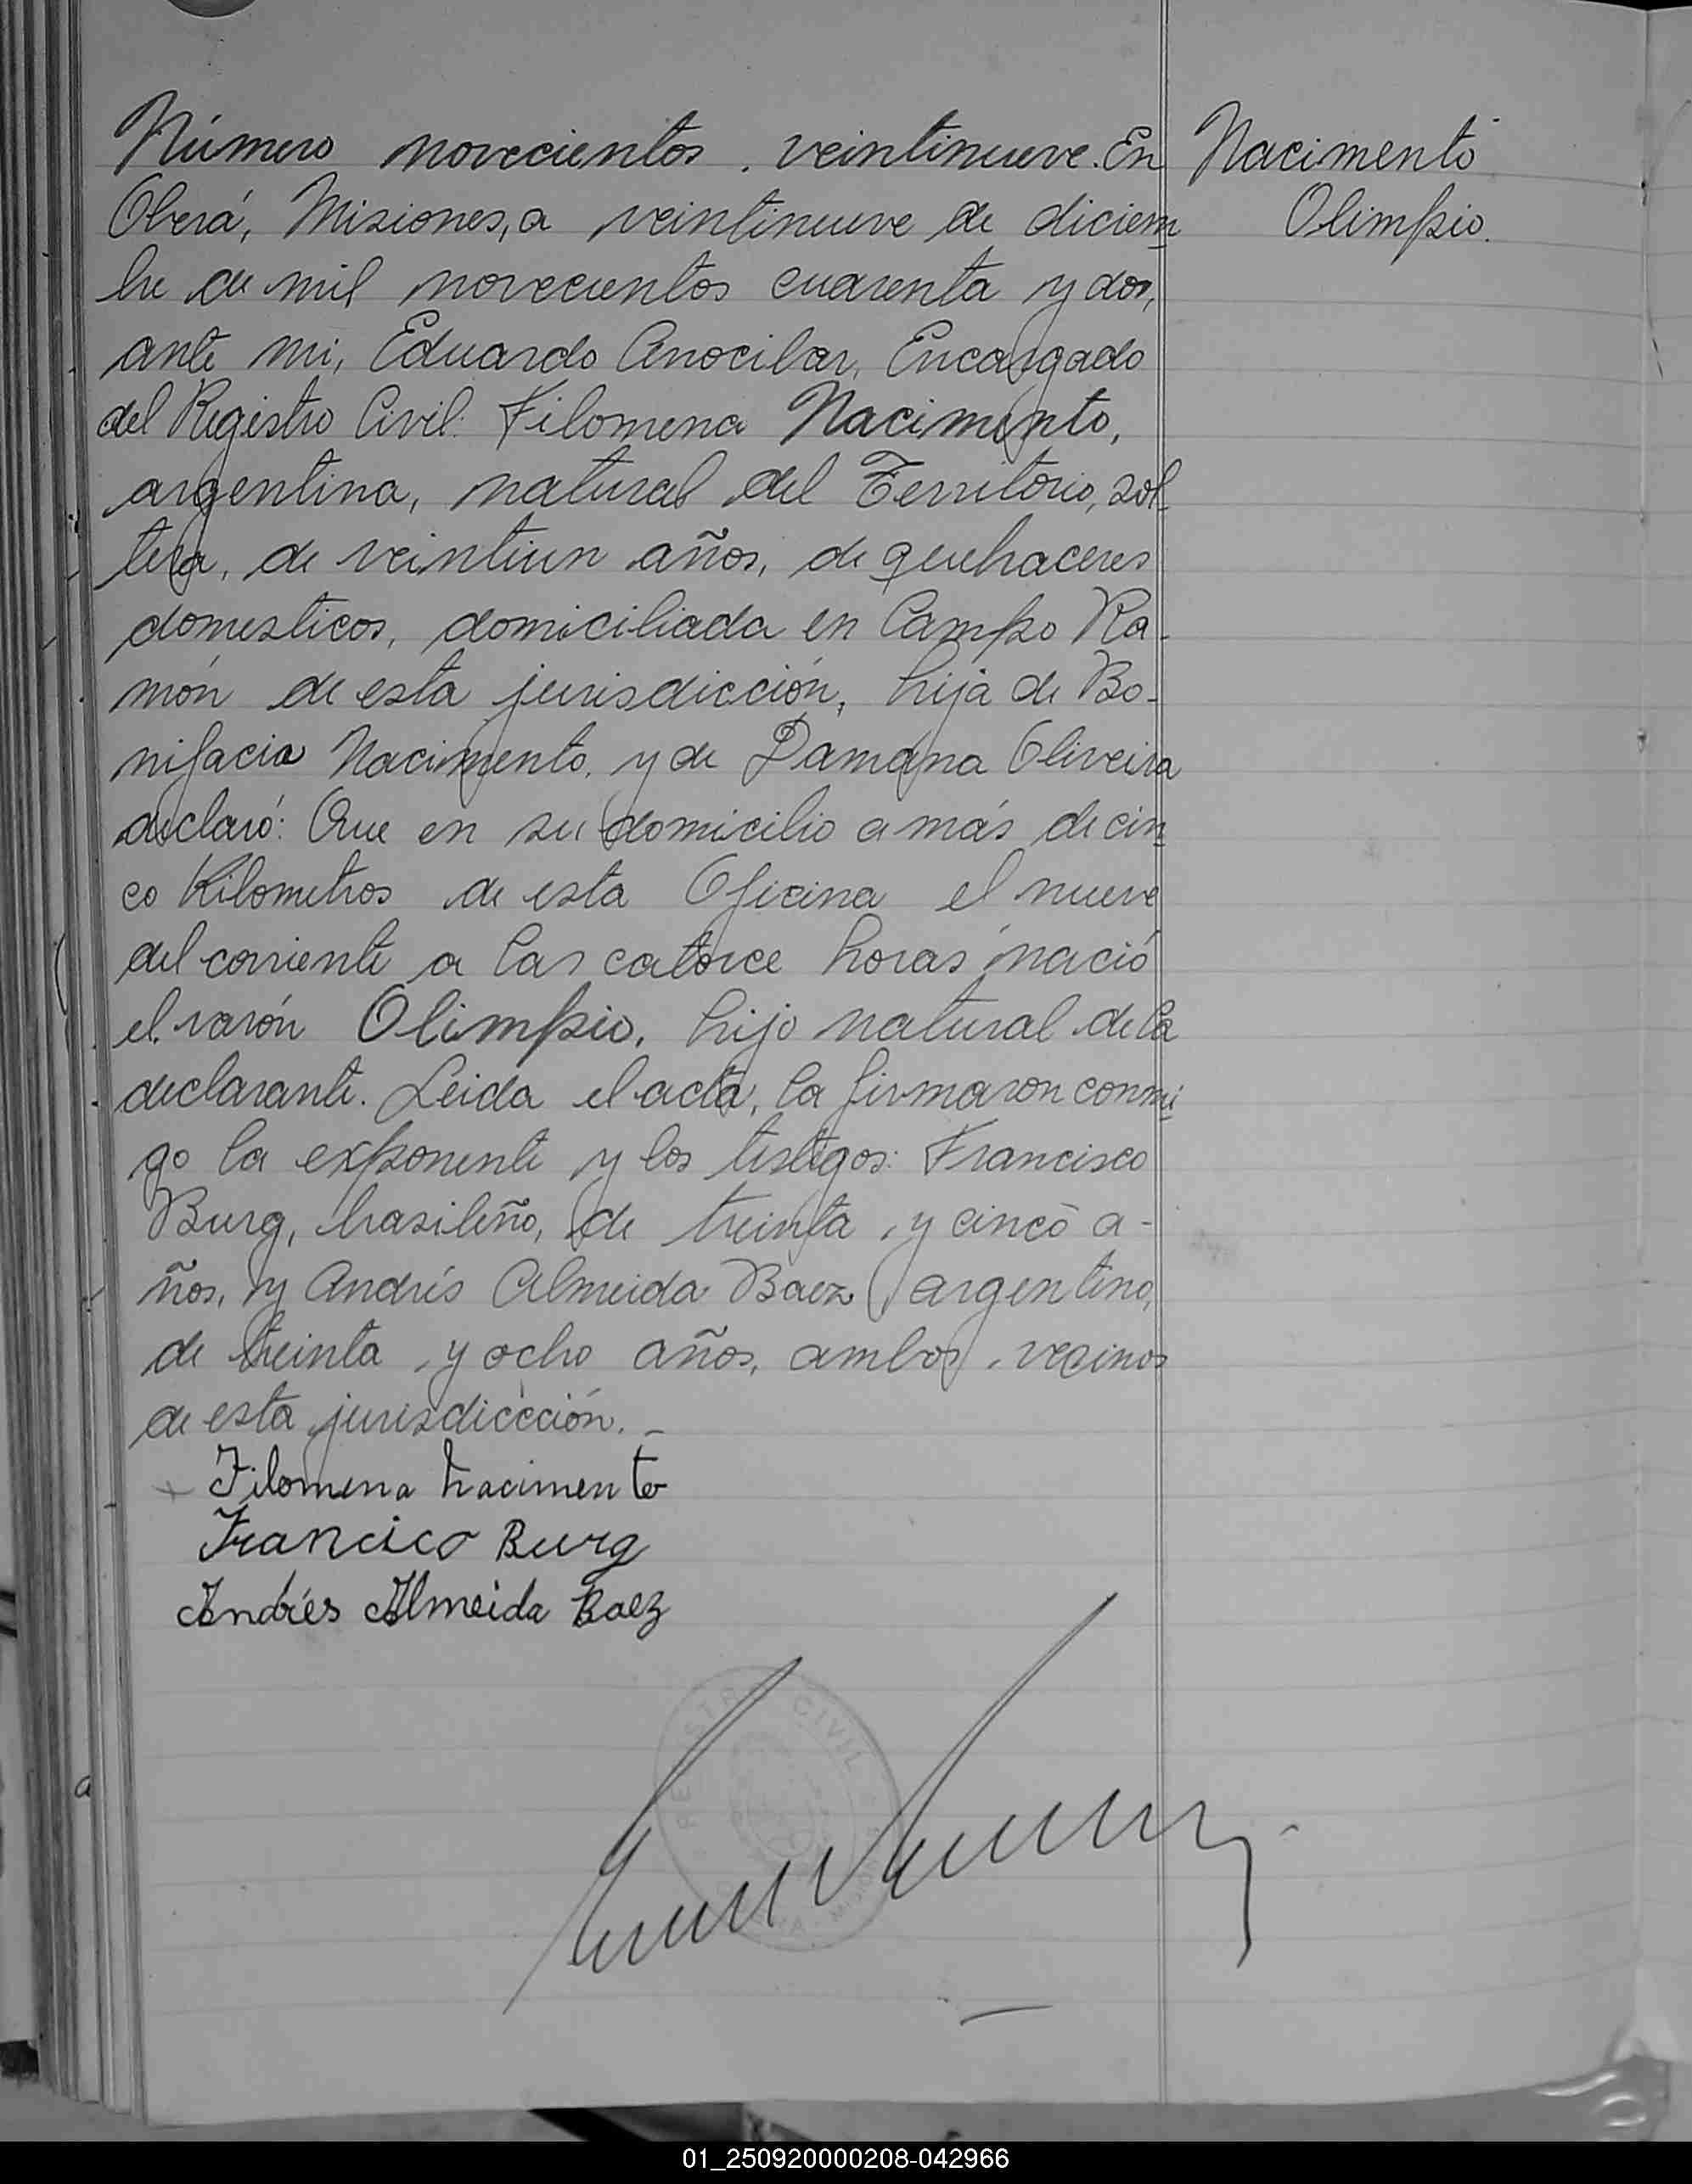 Número novecientos veintinueve. En
Nacimento
Olimpio.
Oberá, Misiones, a veintinueve de diciem
bre de mil novecientos cuarenta y dos,
ante mi, Eduardo Anocibar, Encargado
del Registro Civil: Filomena Nacimento,
argentina, natural del Territorio, sol-
tera, de veintiun años, de quehaceres
domesticos, domiciliada en Campo Ra-
món de esta jurisdicción, hija de Bo-
nifacio Nacimento y de Oliveira
declaró: Que en su domicilio a más de cin
co Kilometros de esta Oficina el nueve
del corriente a las catorce horas nació
el varón Olimpio, hijo natural de la
declarante. Leida el acta, la firmaron conmi
go la exponente y los testigos: Francisco
Burg, brasileño, de treinta y cinco a-
ños, y Andrés Almeida Baez argentino,
de treinta y ocho años, ambos vecinos
de esta jurisdicción.-
Filomena Nacimento
Francico Burg
Andrés Almeida Baez
REGISTRO CIVIL
01_250920000208-042966